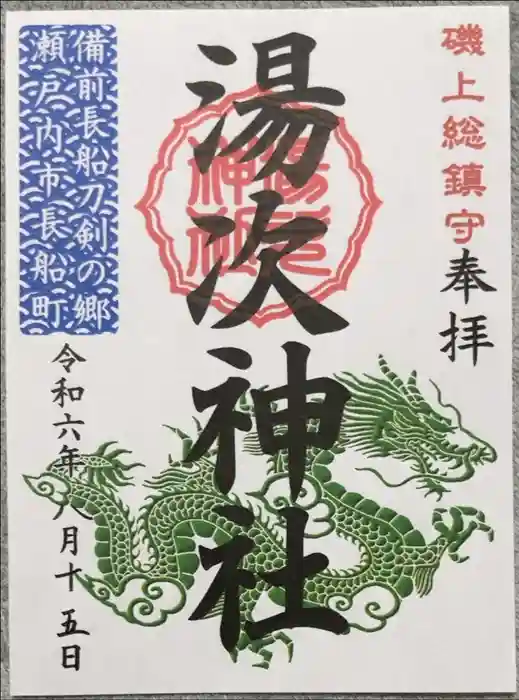 磯上総鎮守
奉拝
湯次神社
備前長船刀剣の郷
瀬戸内市長船町
令和六年八月十五日